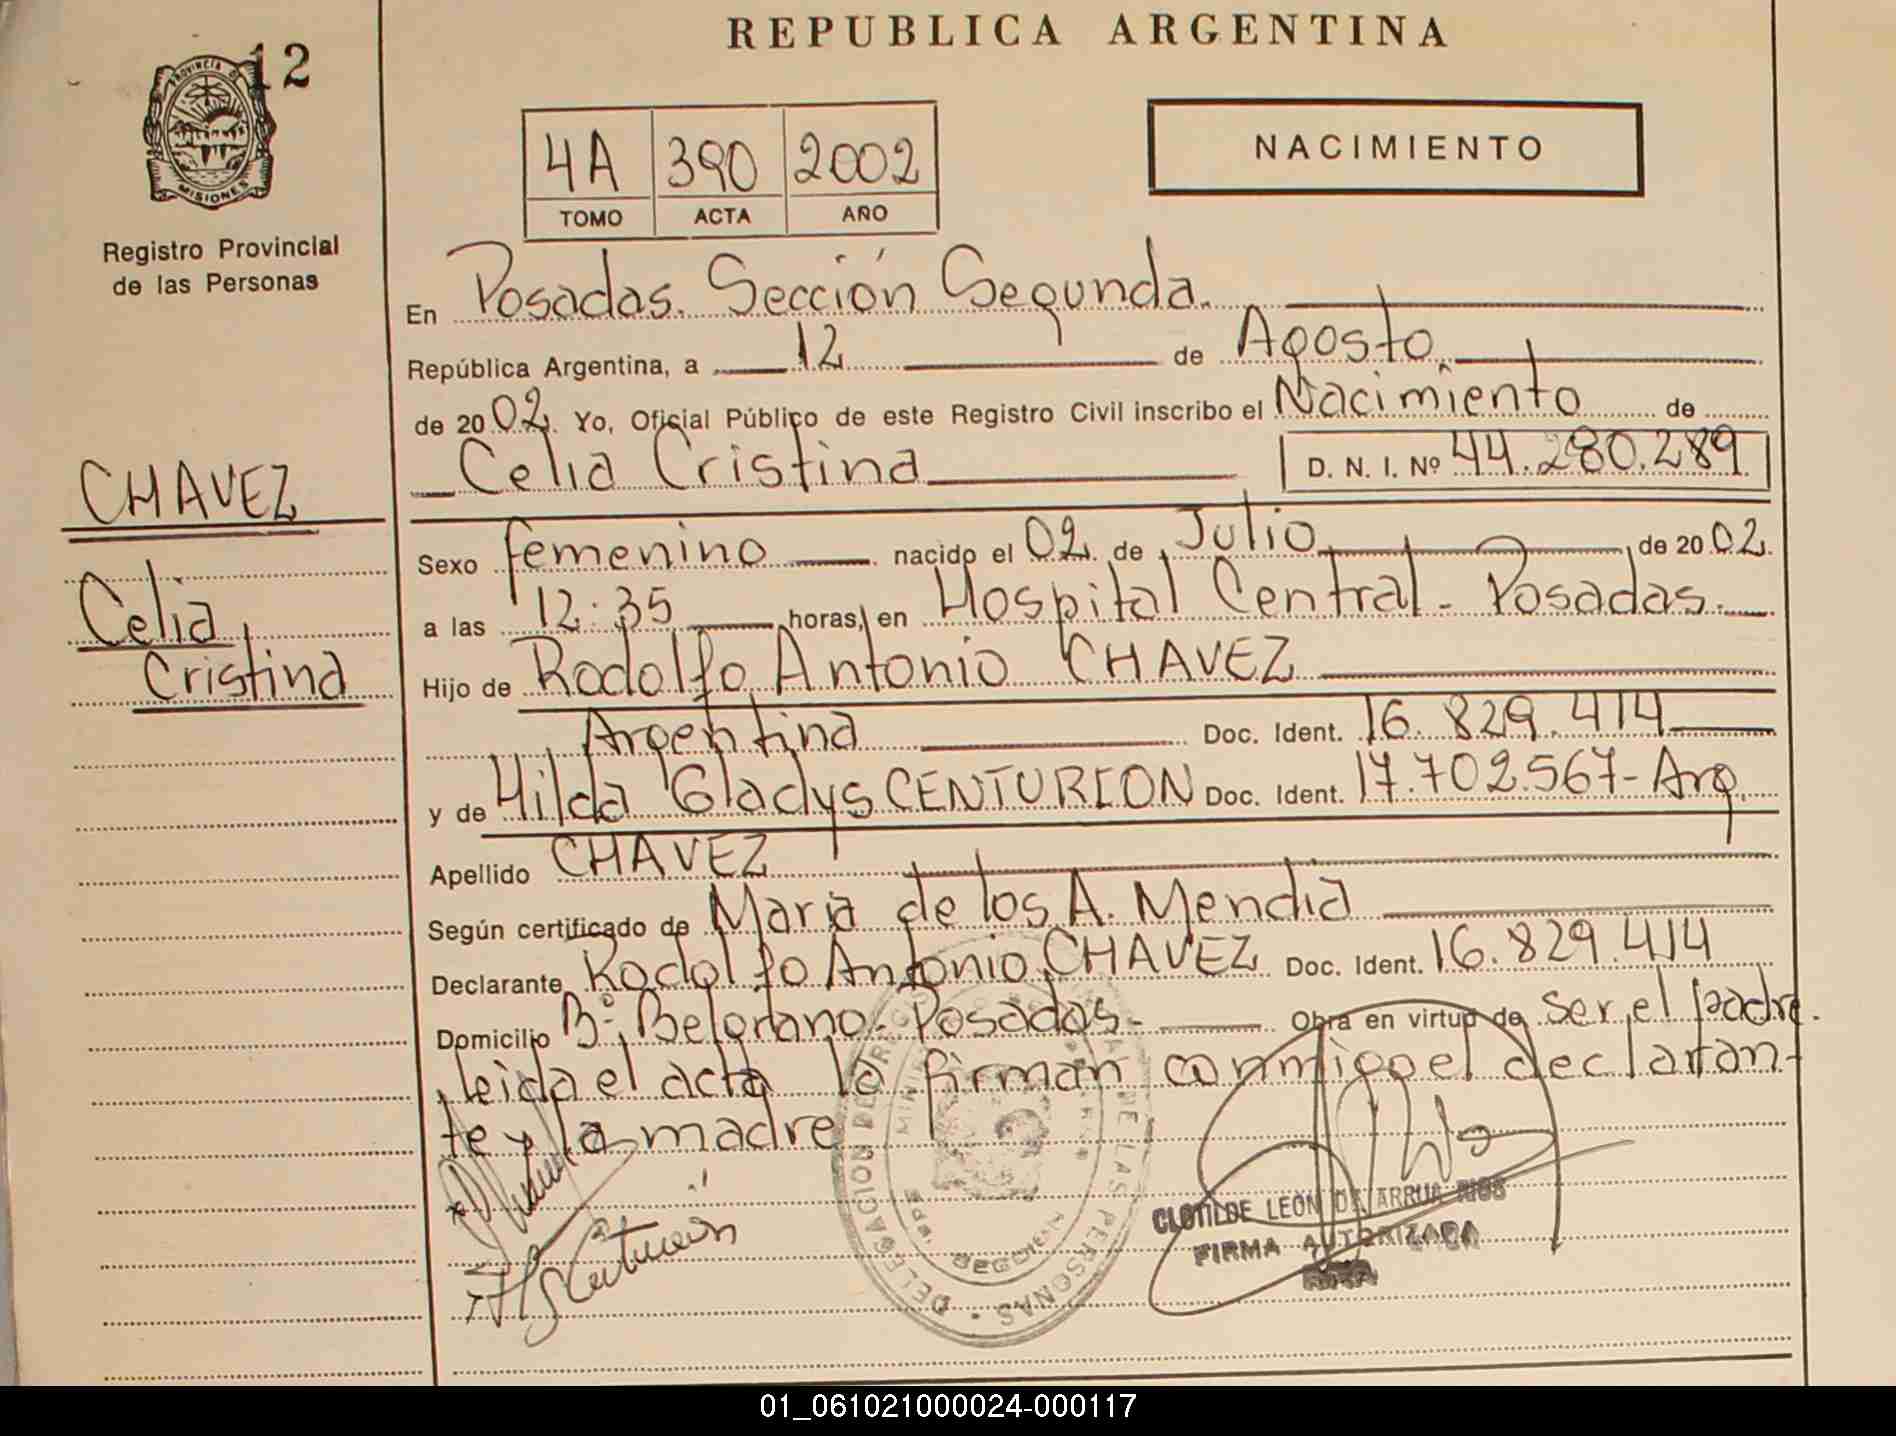 REPUBLICA ARGENTINA
12
PROVINCIA DE
MISIONES
Registro Provincial
de las Personas
4A 390 2002
TOMO ACTA AÑO
NACIMIENTO
En Posadas. Sección Segunda.
República Argentina, a 12 de Agosto
de 2002. Yo, Oficial Público de este Registro Civil inscribo el Nacimiento de
Celia Cristina D. N. I. Nº 44.280.289
CHAVEZ
Celia
Cristina
Sexo femenino nacido el 02 de Julio de 2002.
a las 12:35 horas, en Hospital Central - Posadas.
Hijo de Rodolfo Antonio CHAVEZ
Argentina Doc. Ident. 16.829.414
y de Hilda Gladys CENTURION Doc. Ident. 17.702.567-Arg.
Apellido CHAVEZ
Según certificado de Maria de los A. Mendia
Declarante Rodolfo Antonio CHAVEZ Doc. Ident. 16.829.414
Domicilio Bº Belgrano - Posadas - Obra en virtud de ser el padre.
leida el acta la firman conmigo el declaran-
te y la madre
Centurión
DELEGACION DE LAS PERSONAS
CLOTILDE LEON DE ARRUA RIOS
FIRMA AUTORIZADA
01_061021000024-000117